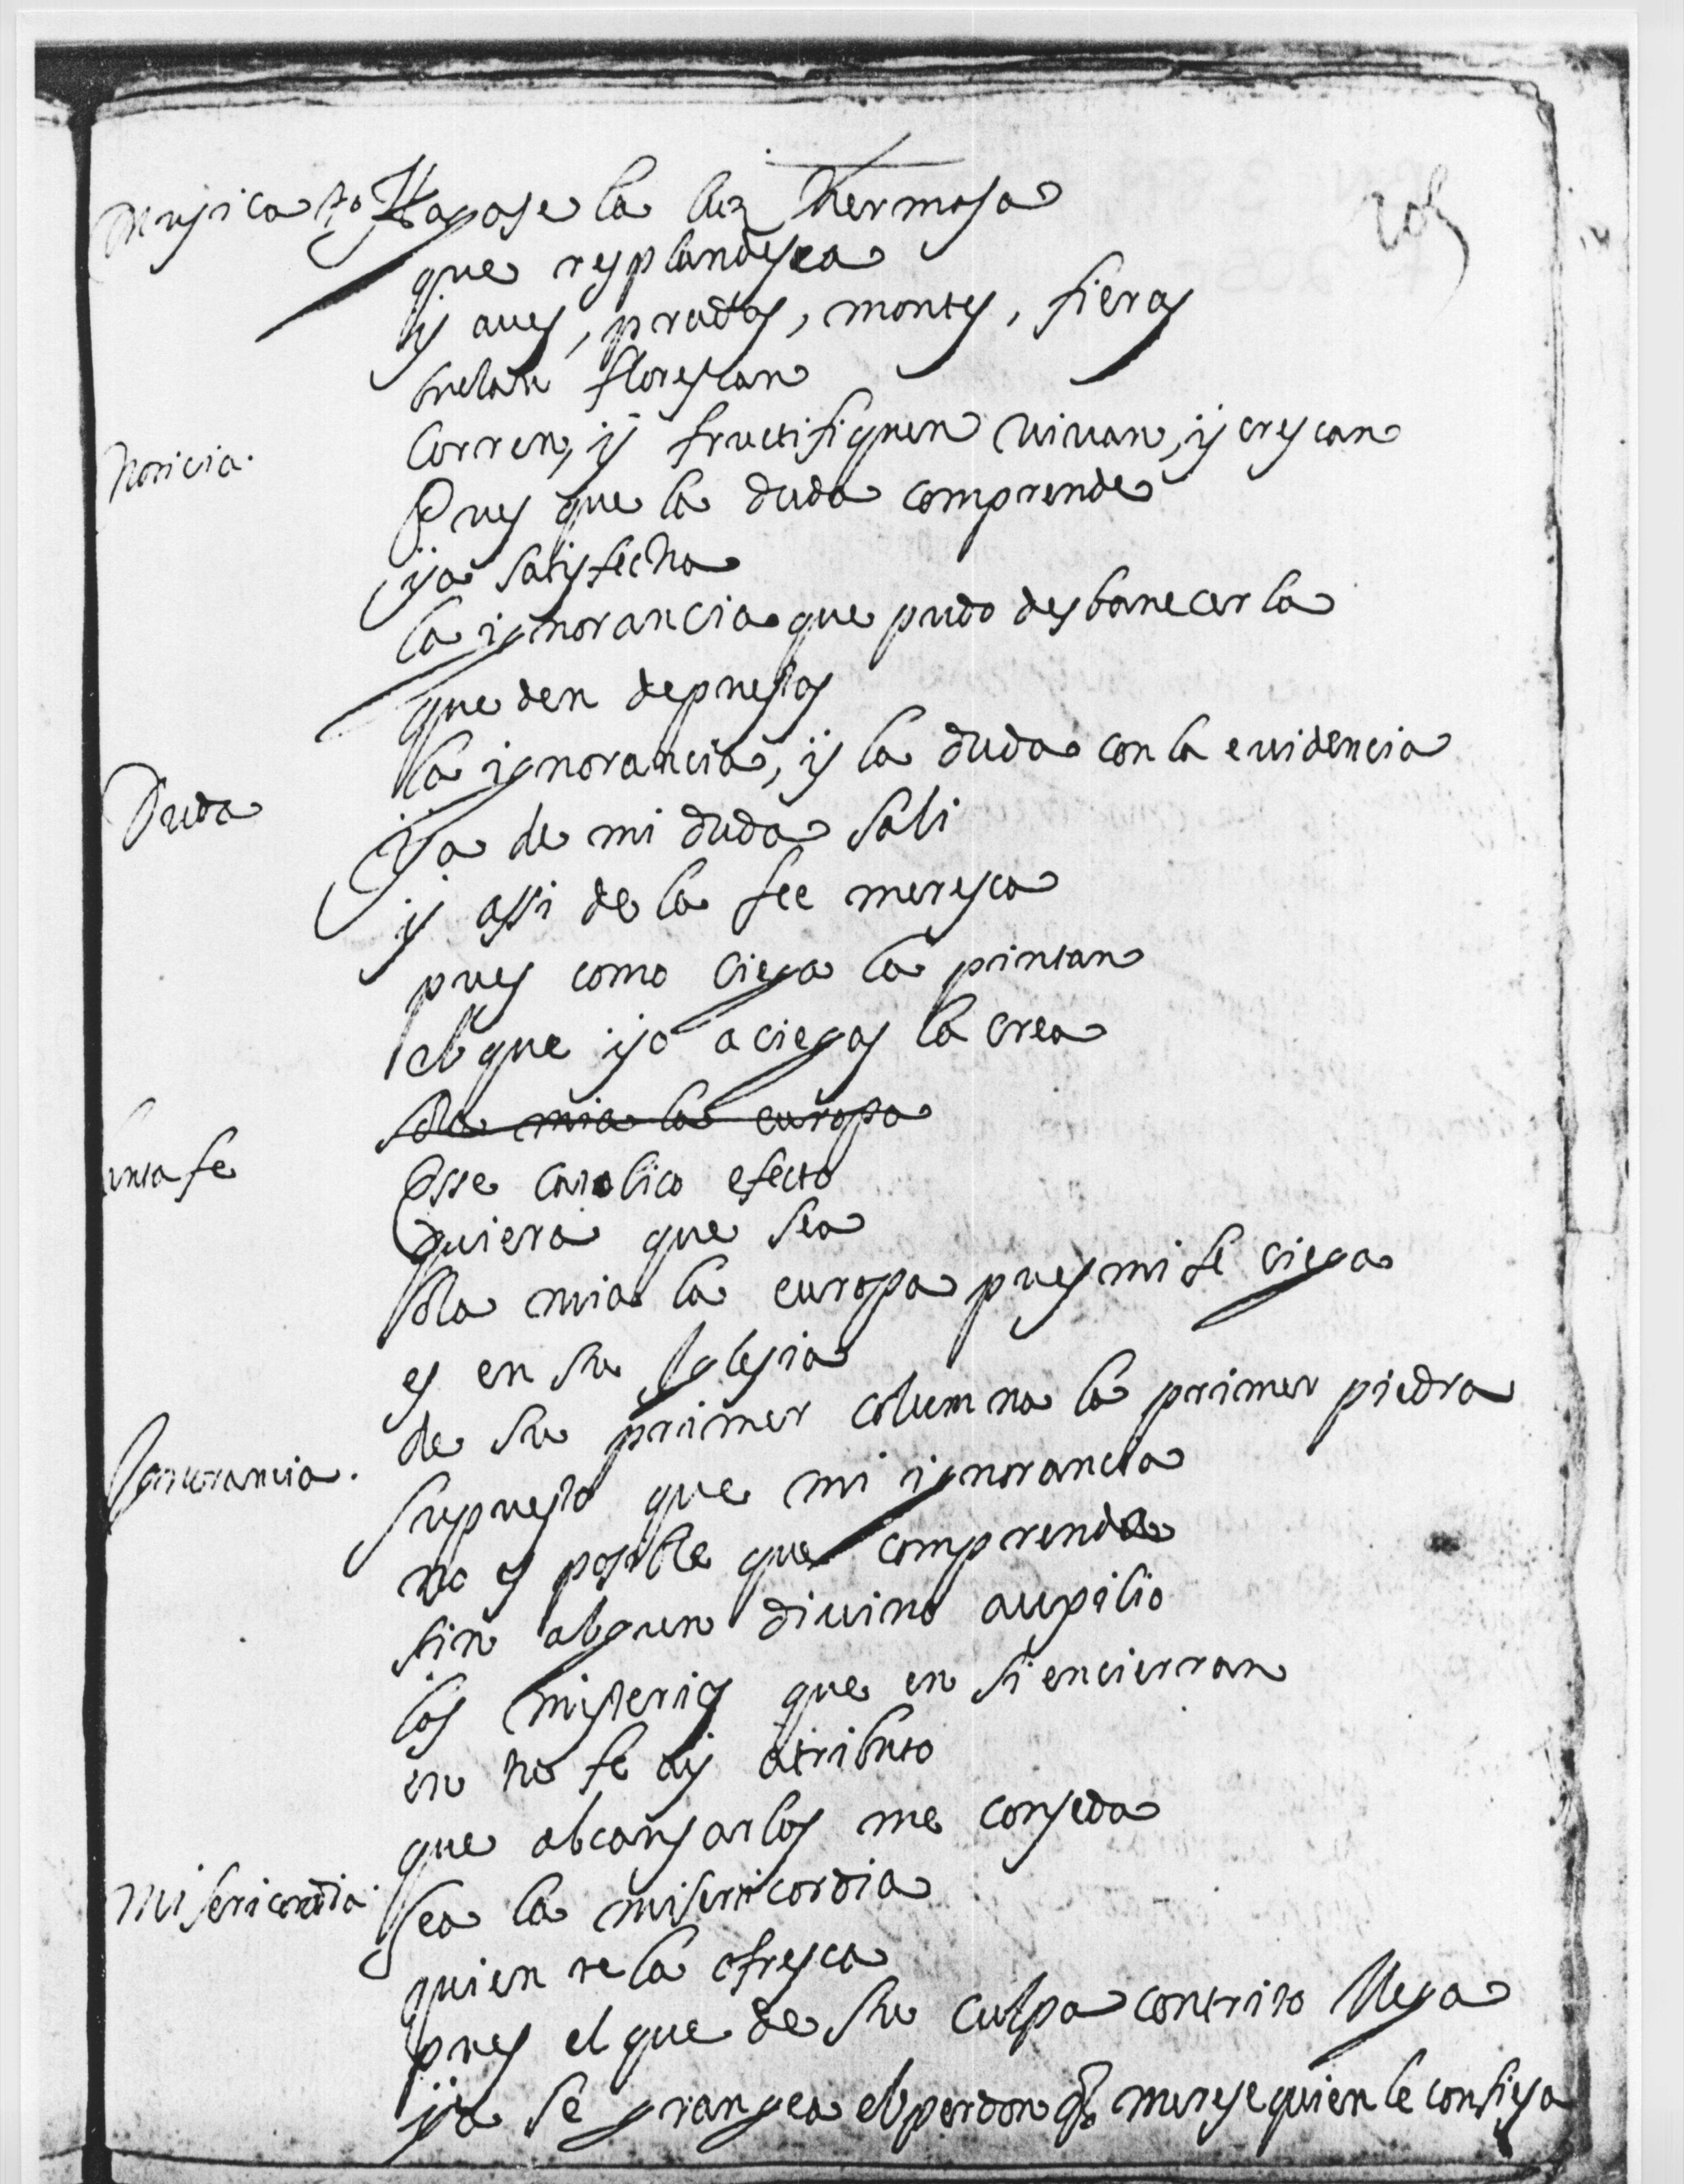 Musica to Hagase la luz hermosa
205
que resplandesca
y aues, prados, montes, fieras
buelan florescan
Noticia. Corren, y fructifiquen viuan, y crescan
Pues que la duda comprende
ya satisfecha
la ignorancia que pudo desbanecerla
queden depuestas
la ignorancia, y la duda con la euidencia
Duda Ya de mi duda sali
y assi de la fee meresca
pues como ciega la pintan
el que yo a ciegas la crea
sola mia la europa
santa fe Esse catolico efecto
quiera que sea
sola mia la europa pues mi fe ciega
es en su Iglesia
de su primer columna la primer piedra
Ignorancia. Supuesto que mi ignorancia
no es posible que comprenda
sin algun diuino aupilio
los misterios que en si encierran
en no fe ay atributo
que alcansarlos me conseda
Misericordia. Sea la misericordia
quien te la ofresca
pues el que de su culpa contrito llega
ya se grangea el perdon q merese quien le confiesa